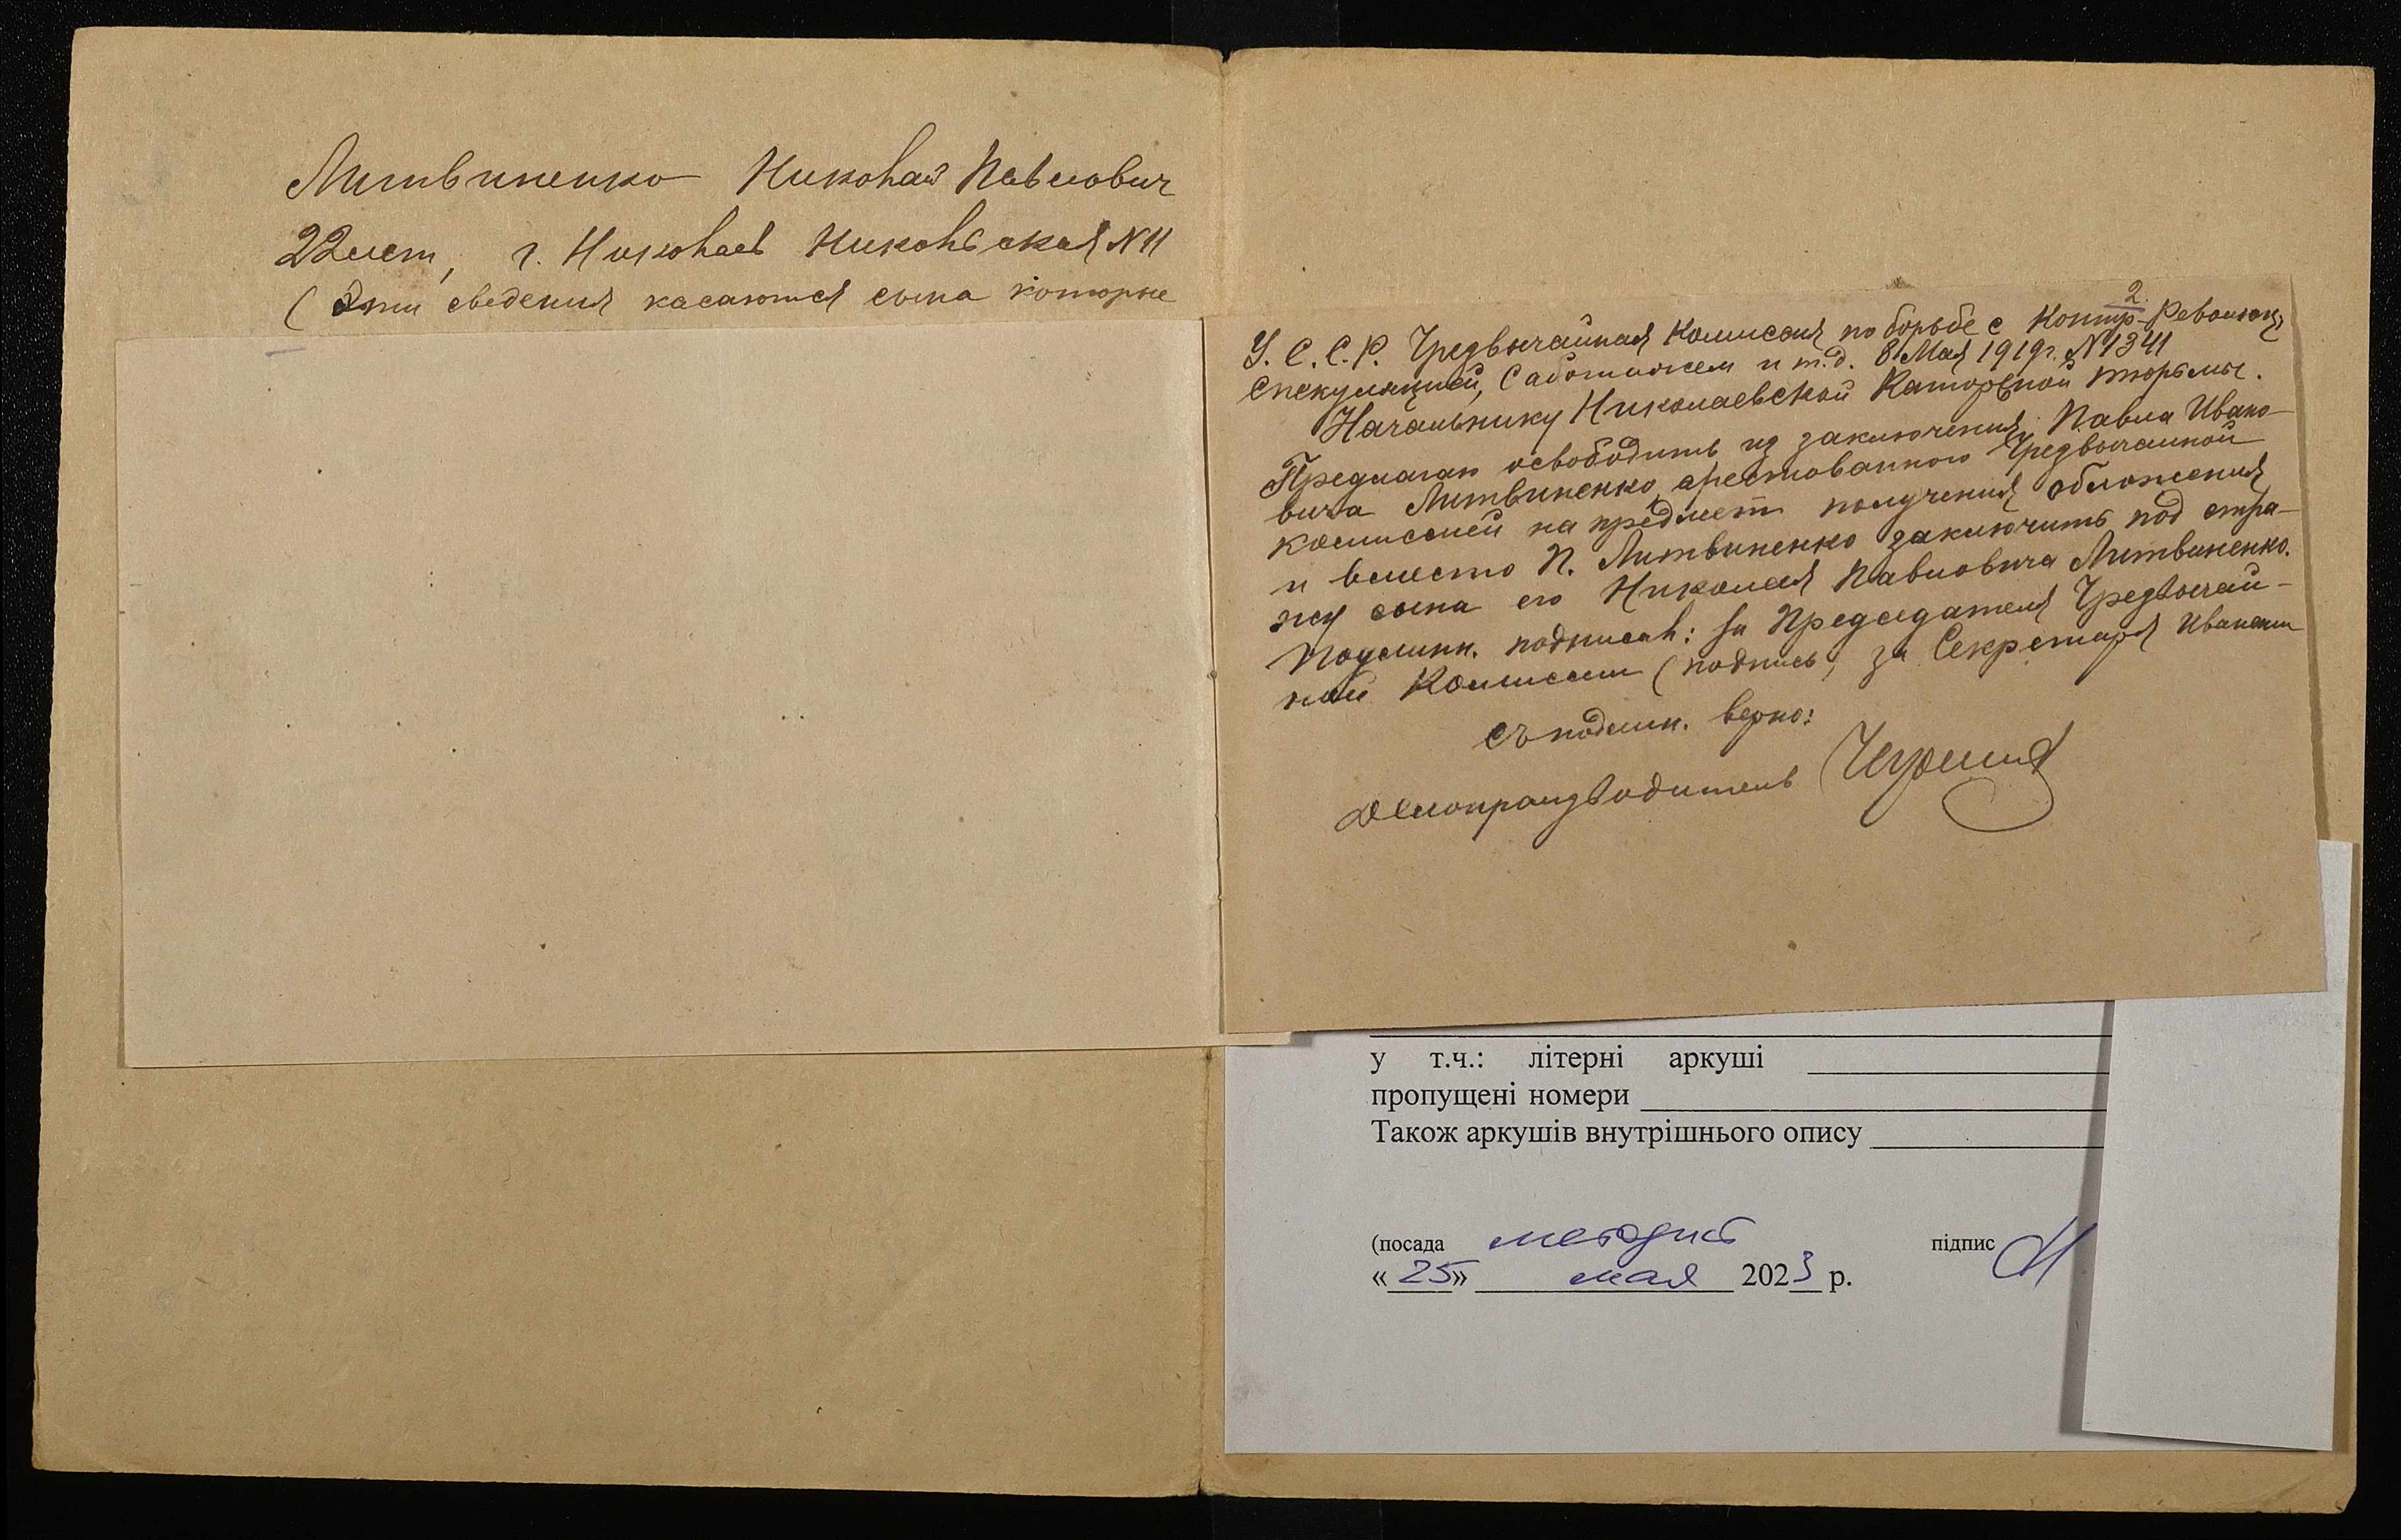 Литвиненко Николай Павлович
22 лет, г. Николаев Никольская N 11
(Эти сведения касаются сына которые
2.
У. С. С. Р. Чредвычайная Комиссия по борьбе с Контр-Революц,
спекуляцией, Саботажем и т.д. 8 Мая 1919 г. N 1341
Начальнику Николаевской Каторжной тюрьмы.
Предлагаю освободить из заключения Павла Ивано-
вича Литвиненко, арестованного Чредвычайной
комиссией на предмет получения обложения
и вместо П. Литвиненко заключить под стра-
жу сына его Николая Павловича Литвиненко.
Подлинн. подписал: за Председателя Чредвычай-
ной Комиссии (подпись) за Секретаря
съ подлин. верно:
Делопроизводитель
у т.ч.: літерні аркуші
пропущені номери
Також аркушів внутрішнього опису
(посада методист підпис
«25» мая 2023 р.